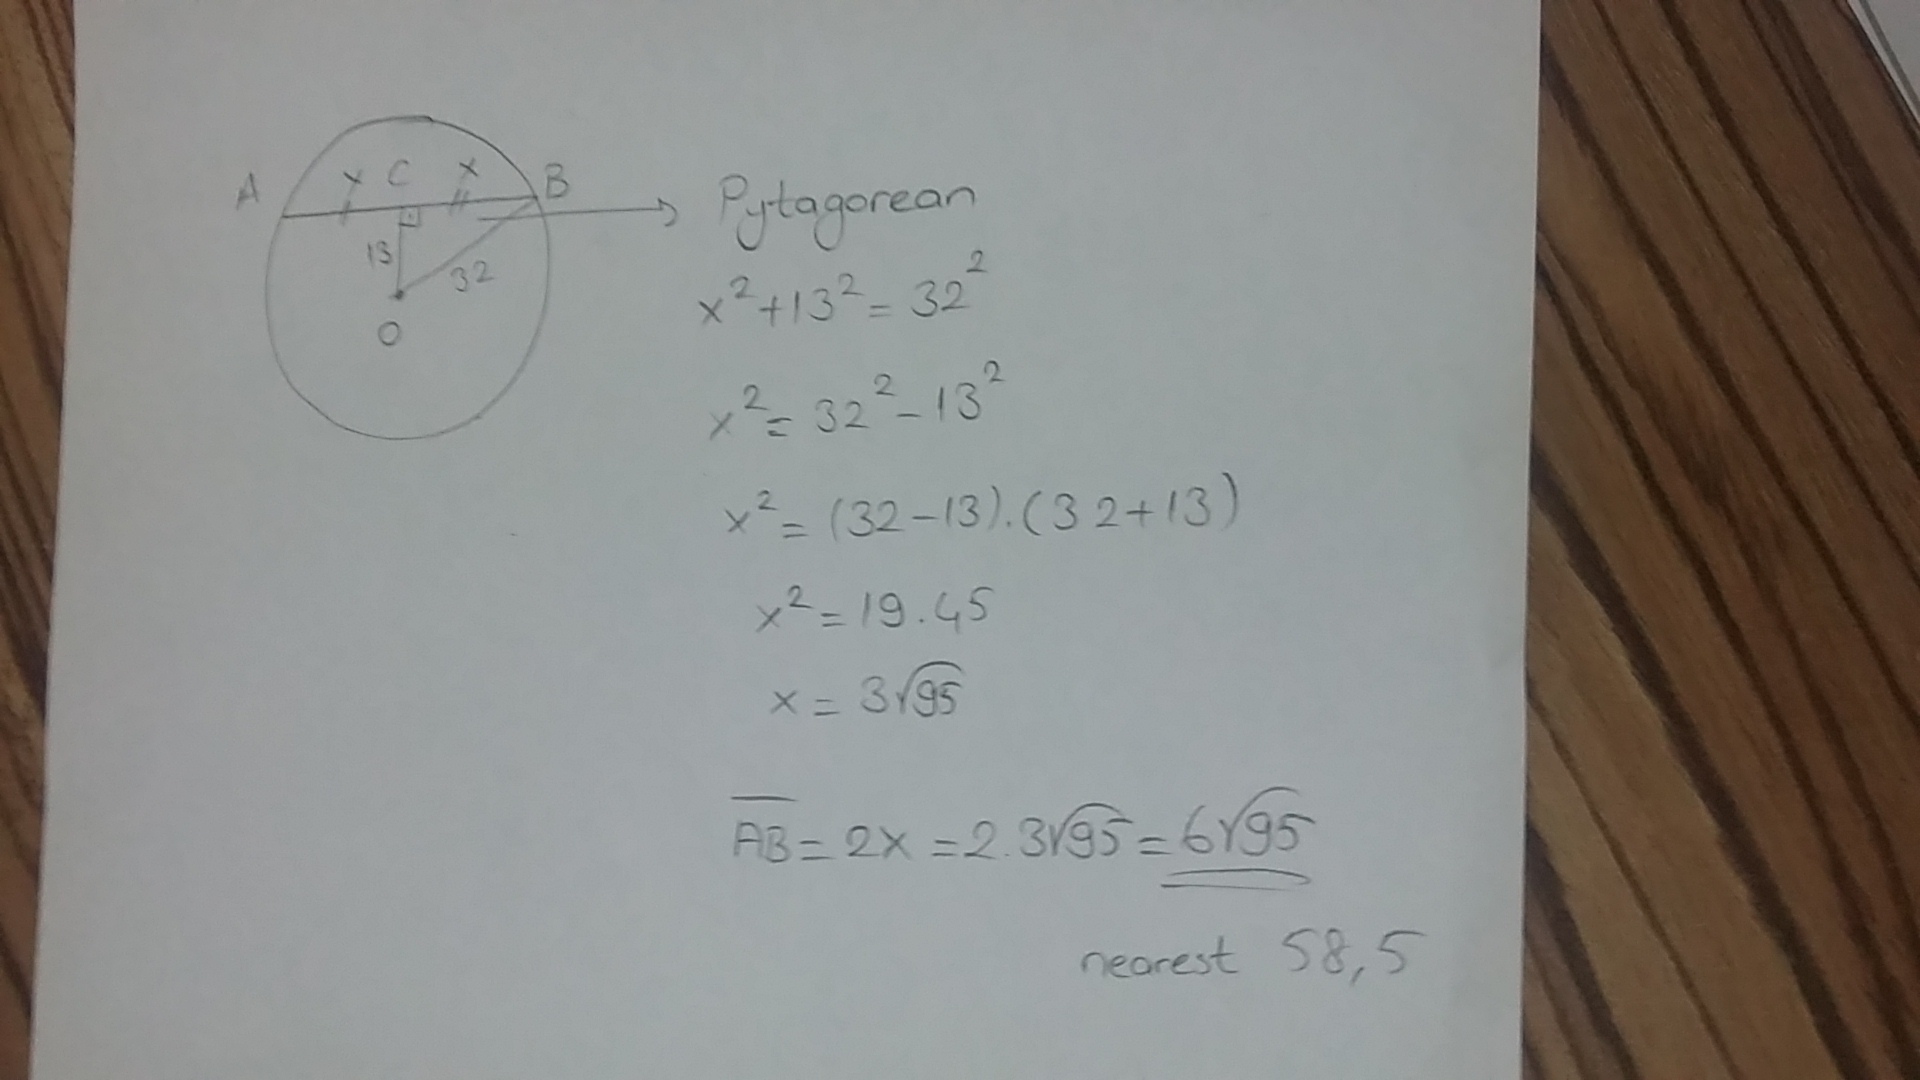 A x C x B
13 32
O
Pytagorean
x²+13²=32²
x²=32²-13²
x²=(32-13).(32+13)
x²=19.45
x=3√95
A̅B̅=2x=2.3√95=6√95
nearest 58,5